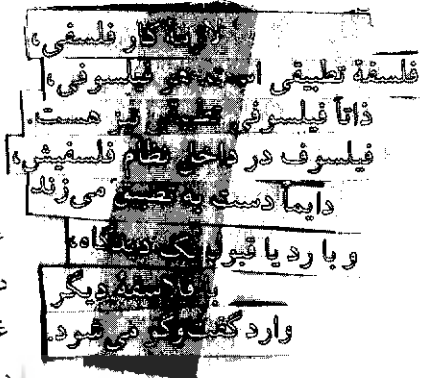 لازمهٔ کار فلسفی،
فلسفهٔ تطبیقی است که هر فیلسوفی،
ذاتاً فیلسوفی تطبیقی نیز هست.
فیلسوف در داخل نظام فلسفیش،
دایماً دست به تطبیق می‌زند
و با رد یا قبول یک دیدگاه،
با فلاسفهٔ دیگر
وارد گفت‌وگو می‌شود.